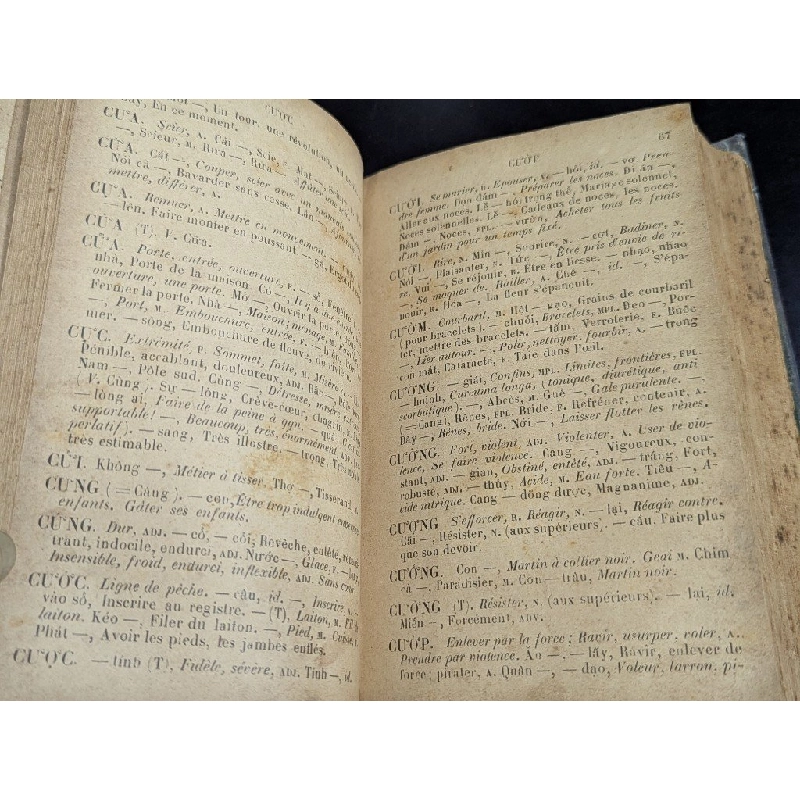 CƯỢT.
day, En ce moment.
CƯA. Scier, A. Cái —, Scie,
—, Scieur, M.
CƯA. Cắt —, Couper, scier avec un
Nói cà —, Bavarder sans cesse. Lần —,
mettre, différer, A.
CƯA. Remuer, A. Mettre en mouvement,
—lên, Faire monter en poussant
CỬA (T). V. Cửa.
CỬA. Porte, entrée, ouverture, F.
nhà, Porte de la maison. Có —, Il y a
ouverture, une porte. Mở —, Ouvrir la porte.
Fermer la porte. Nhà —, Maison; ménage,
—, Port, M. Embouchure, entrée, F. —
mer. — sông, Embouchure de fleuve, de
CỰC. Extrémité, F. Sommet, faîte, M. Misère,
Pénible, accablant, douloureux, ADJ. Bắc —,
Nam —, Pôle sud. Cùng —, Détresse, misère
(V. Cùng). Sự — lòng, Crève-cœur,
— lòng ai, Faire de la peine à qqn. — quá,
supportable! —, Beaucoup, très, énormément,
perlatif). — sang, Très illustre. — trọng,
très estimable.
CỬI. Không —, Métier à tisser. Thợ —, Tisserand,
CƯNG (=Càng). — con, Être trop indulgent envers
enfants. Gâter ses enfants.
CỨNG. Dur, ADJ. — cỏ, — cỏi, Revêche, entêté,
trant, indocile, endurci, ADJ. Nước —, Glace, F.
Insensible, froid, endurci, inflexible, ADJ. Sans
CƯỚC. Ligne de pêche. — câu, id. —, Inscrire,
vào sổ, Inscrire au registre. — (T), Laiton, M. Fil
laiton. Kéo —, Filer du laiton. —, Pied, M.
Phát —, Avoir les pieds, les jambes enflés.
CƯỢC. — tính (T), Fidèle, sévère, ADJ. Tính —, id.
CƯỚP 67
CƯỚI. Se marier, N. Épouser, A. — hỏi, id. — vợ, Pren-
dre femme. Dọn đám —, Préparer les noces. Đi ăn —,
Aller aux noces. Lễ — hỏi trọng thể, Mariage solennel,
Noces solennelles. Lễ —, Cadeaux de noces, les noces.
Đám —, Noces, FPL. — vườn, Acheter tous les fruits
d'un jardin pour un temps fixé.
CƯỜI. Rire, N. Mỉm —, Sourire, N. — cợt, Badiner, N.
Nói —, Plaisanter, N. Tức —, Être pris d'envie de ri-
re. Vui —, Se réjouir, N. Être en liesse. — nhạo, nhạo
—, Se moquer de. Railler, A. Chê —, id. —, S'épa-
nouir, N. Hoa —, La fleur s'épanouit.
CƯỜM. Courbaril, M. Hột — kẹo, Grains de courbaril
(pour bracelets). — chuỗi, Bracelets, MPL. Đeo —, Por-
ter, mettre des bracelets. — tấm, Verroterie, F. Buộc
—, Lier autour. —, Polir, nettoyer, fourbir, A. — trong
con mắt, Cataracte, F. Taie dans l'œil.
CƯƠNG. — giái, Confins, MPL. Limites, frontières, FPL.
— huình, Curcuma longa, (tonique, diurétique, anti
scorbutique). —, Abcès, M. Ghẻ —, Gale purulente. —,
(=Cang), Rênes, FPL. Bride, F. Refréner, contenir, A.
Dây —, Rênes, bride. Nới —, Laisser flotter les rênes.
CƯỜNG. Fort, violent, ADJ. Violenter, A. User de vio-
lence, Se faire violence. Cang —, Vigoureux, con-
stant, ADJ. — gian, Obstiné, entêté, ADJ. — tráng, Fort,
robuste, ADJ. — thủy, Acide, M. Eau forte. Tiêu —, A-
cide nitrique. Cang — đõng dược, Magnanime, ADJ.
CƯỢNG. S'efforcer, R. Réagir, N. — lại, Réagir contre.
Cãi —, Résister, N. (aux supérieurs). — cầu, Faire plus
que son devoir.
CƯỠNG. Con —, Martin à collier noir. Geai M. Chim
cà —, Paradisier, M. Con — trâu, Martin noir.
CƯỠNG (T). Résister, N. (aux supérieurs). — lại, id.
Miễn —, Forcément, ADV.
CƯỚP. Enlever par la force; Ravir, usurper, voler, A.
Prendre par violence. Ăo —, — lấy, Ravir, enlever de
force; pirater, A. Quân —, — đạo, Voleur, larron, pi-